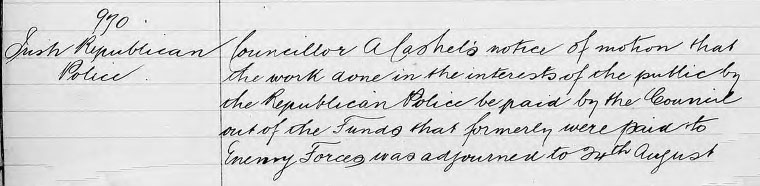 970.
Irish Republican
Police.
Councillor A Cashel's notice of motion that
the work done in the interests of the public by
the Republican Police be paid by the Council
out of the Funds that formerly were paid to
Enemy Forces was adjourned to 24th August